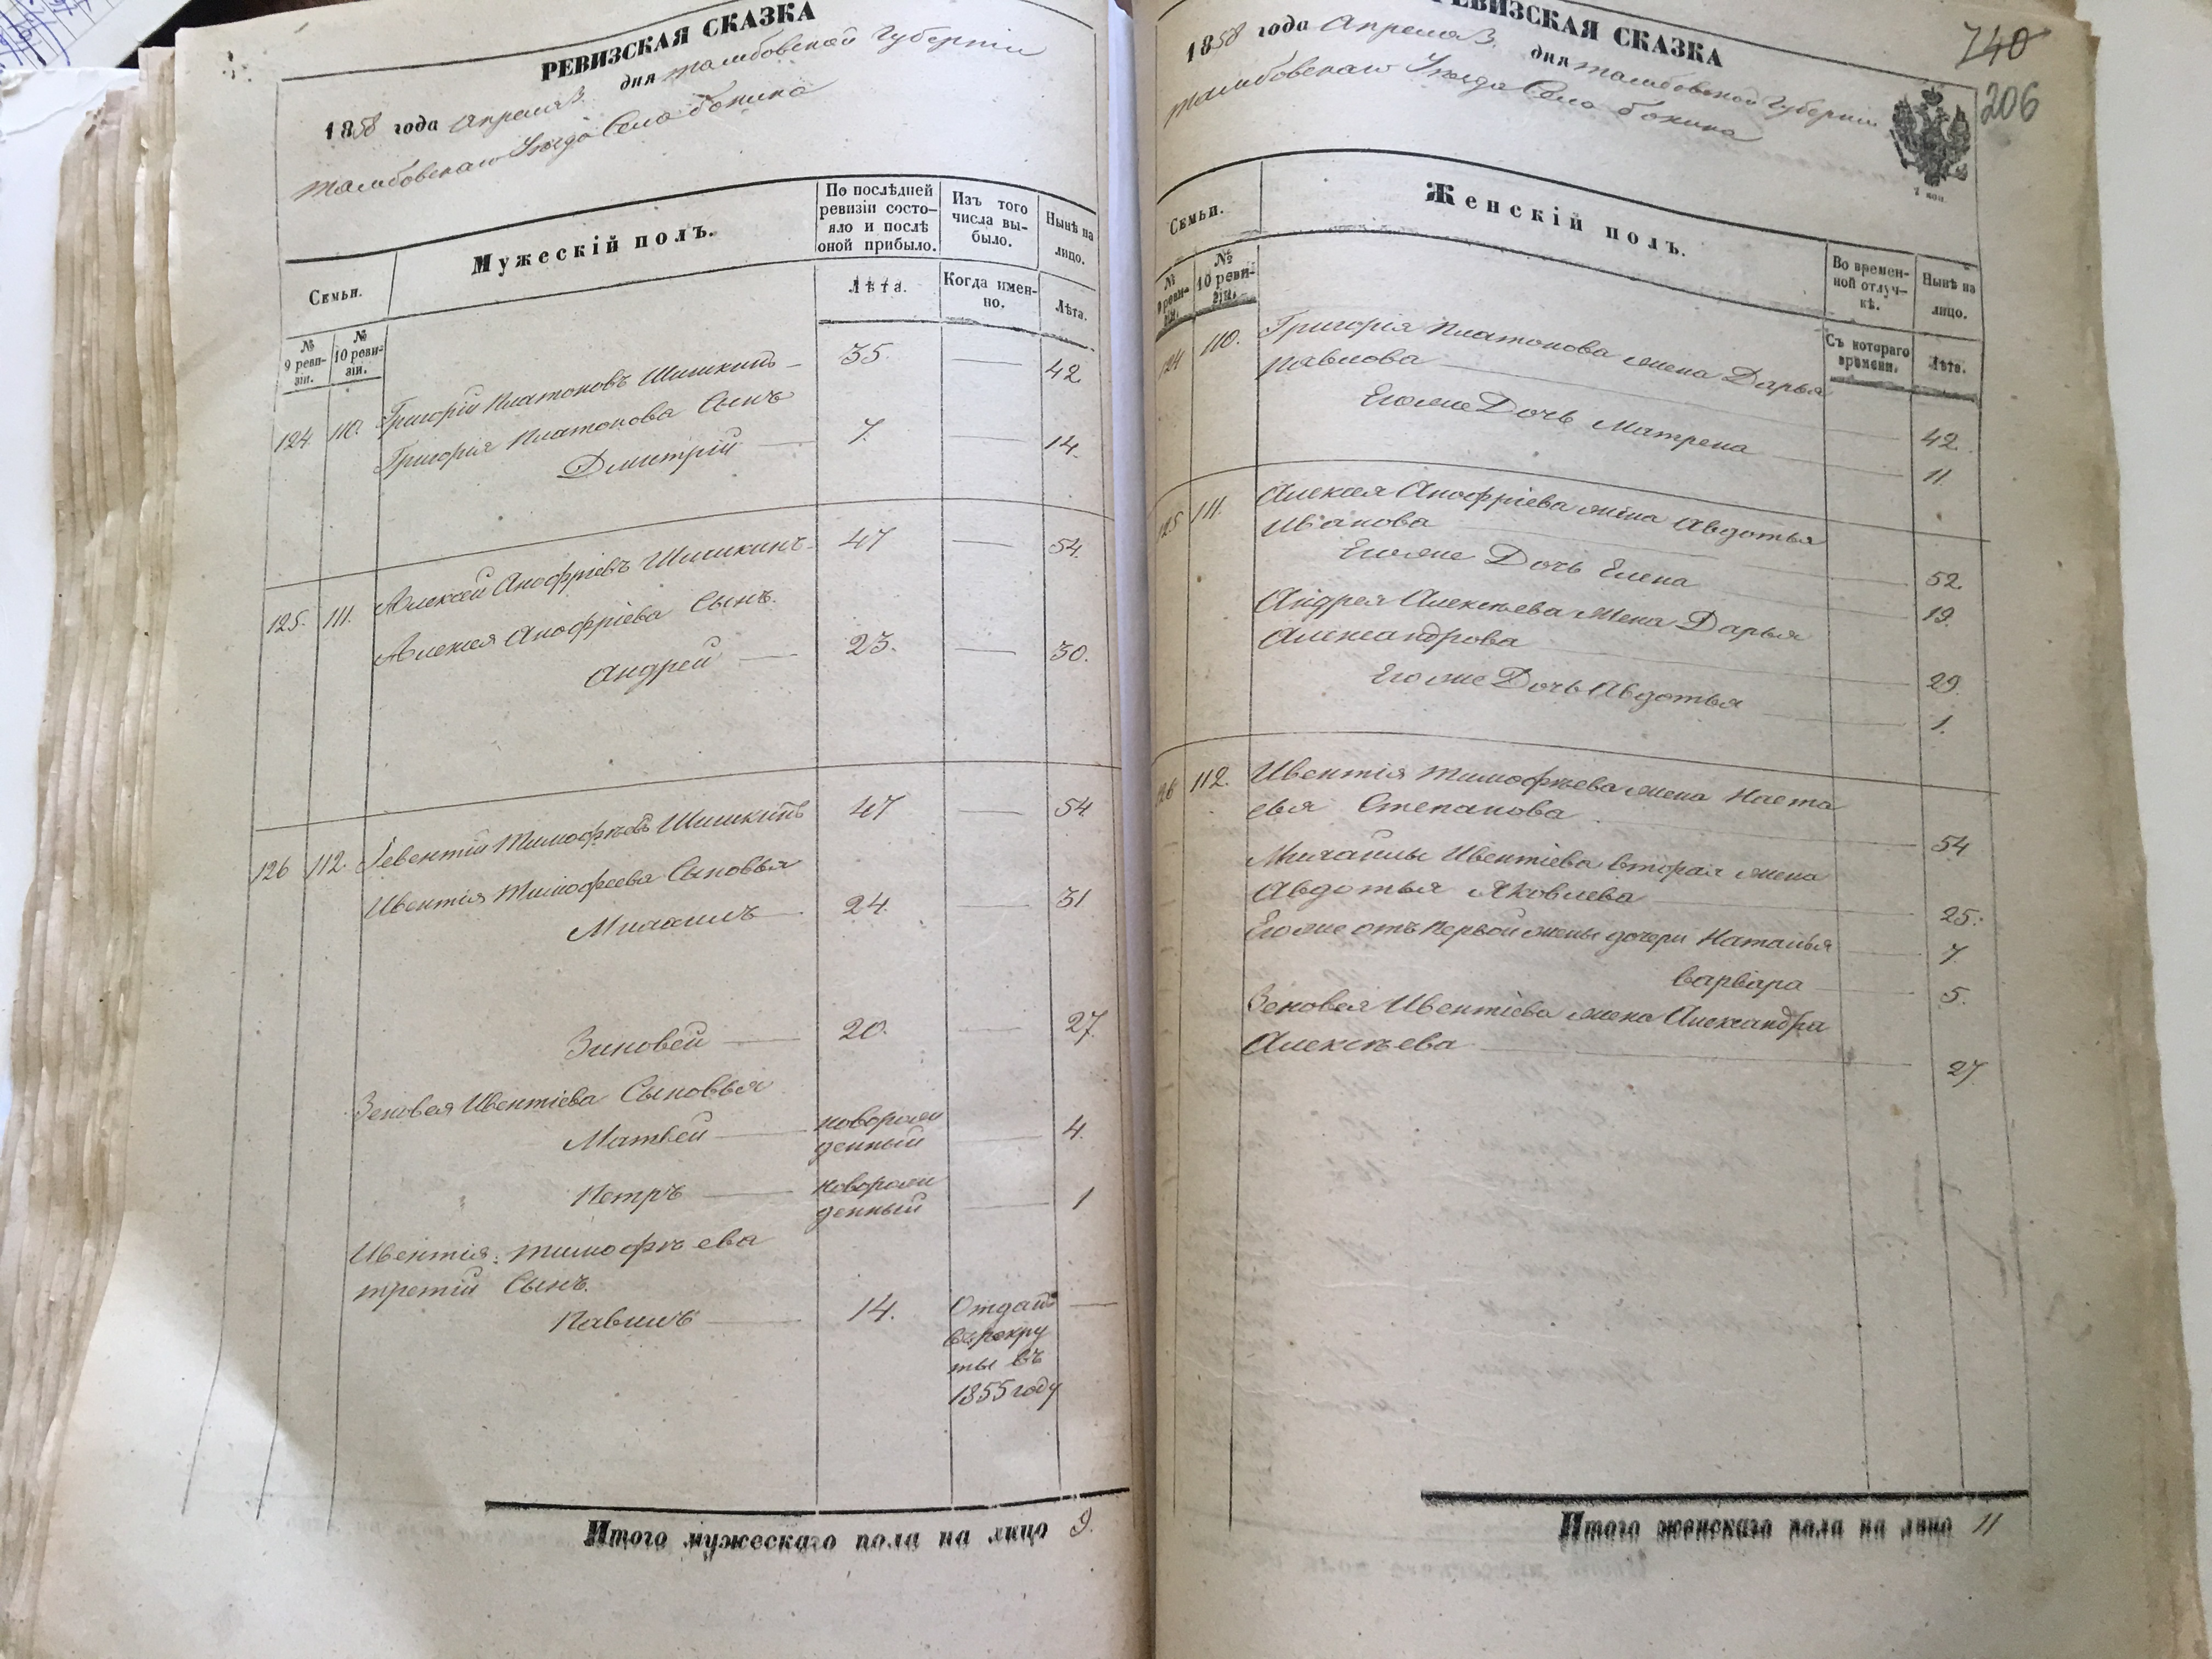 РЕВИЗСКАЯ СКАЗКА
1858 года Апреля 3 дня тамбовской Губернiи
тамбовскаго Уезда Села бокина
Семьи.
Мужескiй полъ.
По послѣдней ревизiи состо-
яло и послѣ
оной прибыло.
Изъ того
числа вы-
было.
Нынѣ на
лицо.
№
9 реви-
зiи.
№
10 реви-
зiи.
Лѣта.
Когда имен-
но.
Лѣта.
124 110. Григорiй Платоновъ Шишкинъ 35. — 42
Григорiя Платонова Сынъ
Дмитрiй — 7. — 14.
125. 111. Алексей Анофрiевъ Шишкинъ 47 — 54.
Алексея Анофрiева Сынъ.
Андрей — 23. — 30.
126 112. Левентiй Тимофѣевъ Шишкинъ 47 — 54
Ивентiя Тимофеева Сыновья
Михаилъ — 24. — 31
Зиновей — 20. — 27.
Зеновея Ивентiева Сыновья
Матвей — новорож
денный — 4.
Петръ — новорож
денный — 1
Ивентiя тимофѣева
третiй Сынъ.
Павилъ — 14. Отданъ —
врекру
ты въ
1855 году
Итого мужескаго пола на лицо 9.
740
206
РЕВИЗСКАЯ СКАЗКА
1858 года Апреля 3. дня тамбовской Губернiи
тамбовскаго Уезда Села бокина
1 коп.
Семьи.
Женскiй полъ.
Во времен-
ной отлуч-
кѣ.
Нынѣ на
лицо.
№
9 реви-
зiи.
№
10 реви-
зiи.
Съ котораго
времени.
Лѣта.
124 110. Григорiя Платонова жена Дарья
Павлова — 42.
Егоже Дочь Матрена — 11.
125 111. Алексея Анофрiева жена Авдотья
Иванова — 52.
Егоже Дочь Елена — 19.
Андрея Алексѣева Жена Дарья
Александрова — 29.
Егоже Дочь Авдотья — 1.
126 112. Ивентiя тимофѣева жена Наста
сья Степанова — 54
Михаилы Ивентiева вторая жена
Авдотья Яковлева — 25.
Егоже отъ первой жены дочери Наталья — 7
Варвара — 5.
Зеновея Ивентiева жена Александра
Алексѣева — 27
Итого женскаго пола на лицо 11